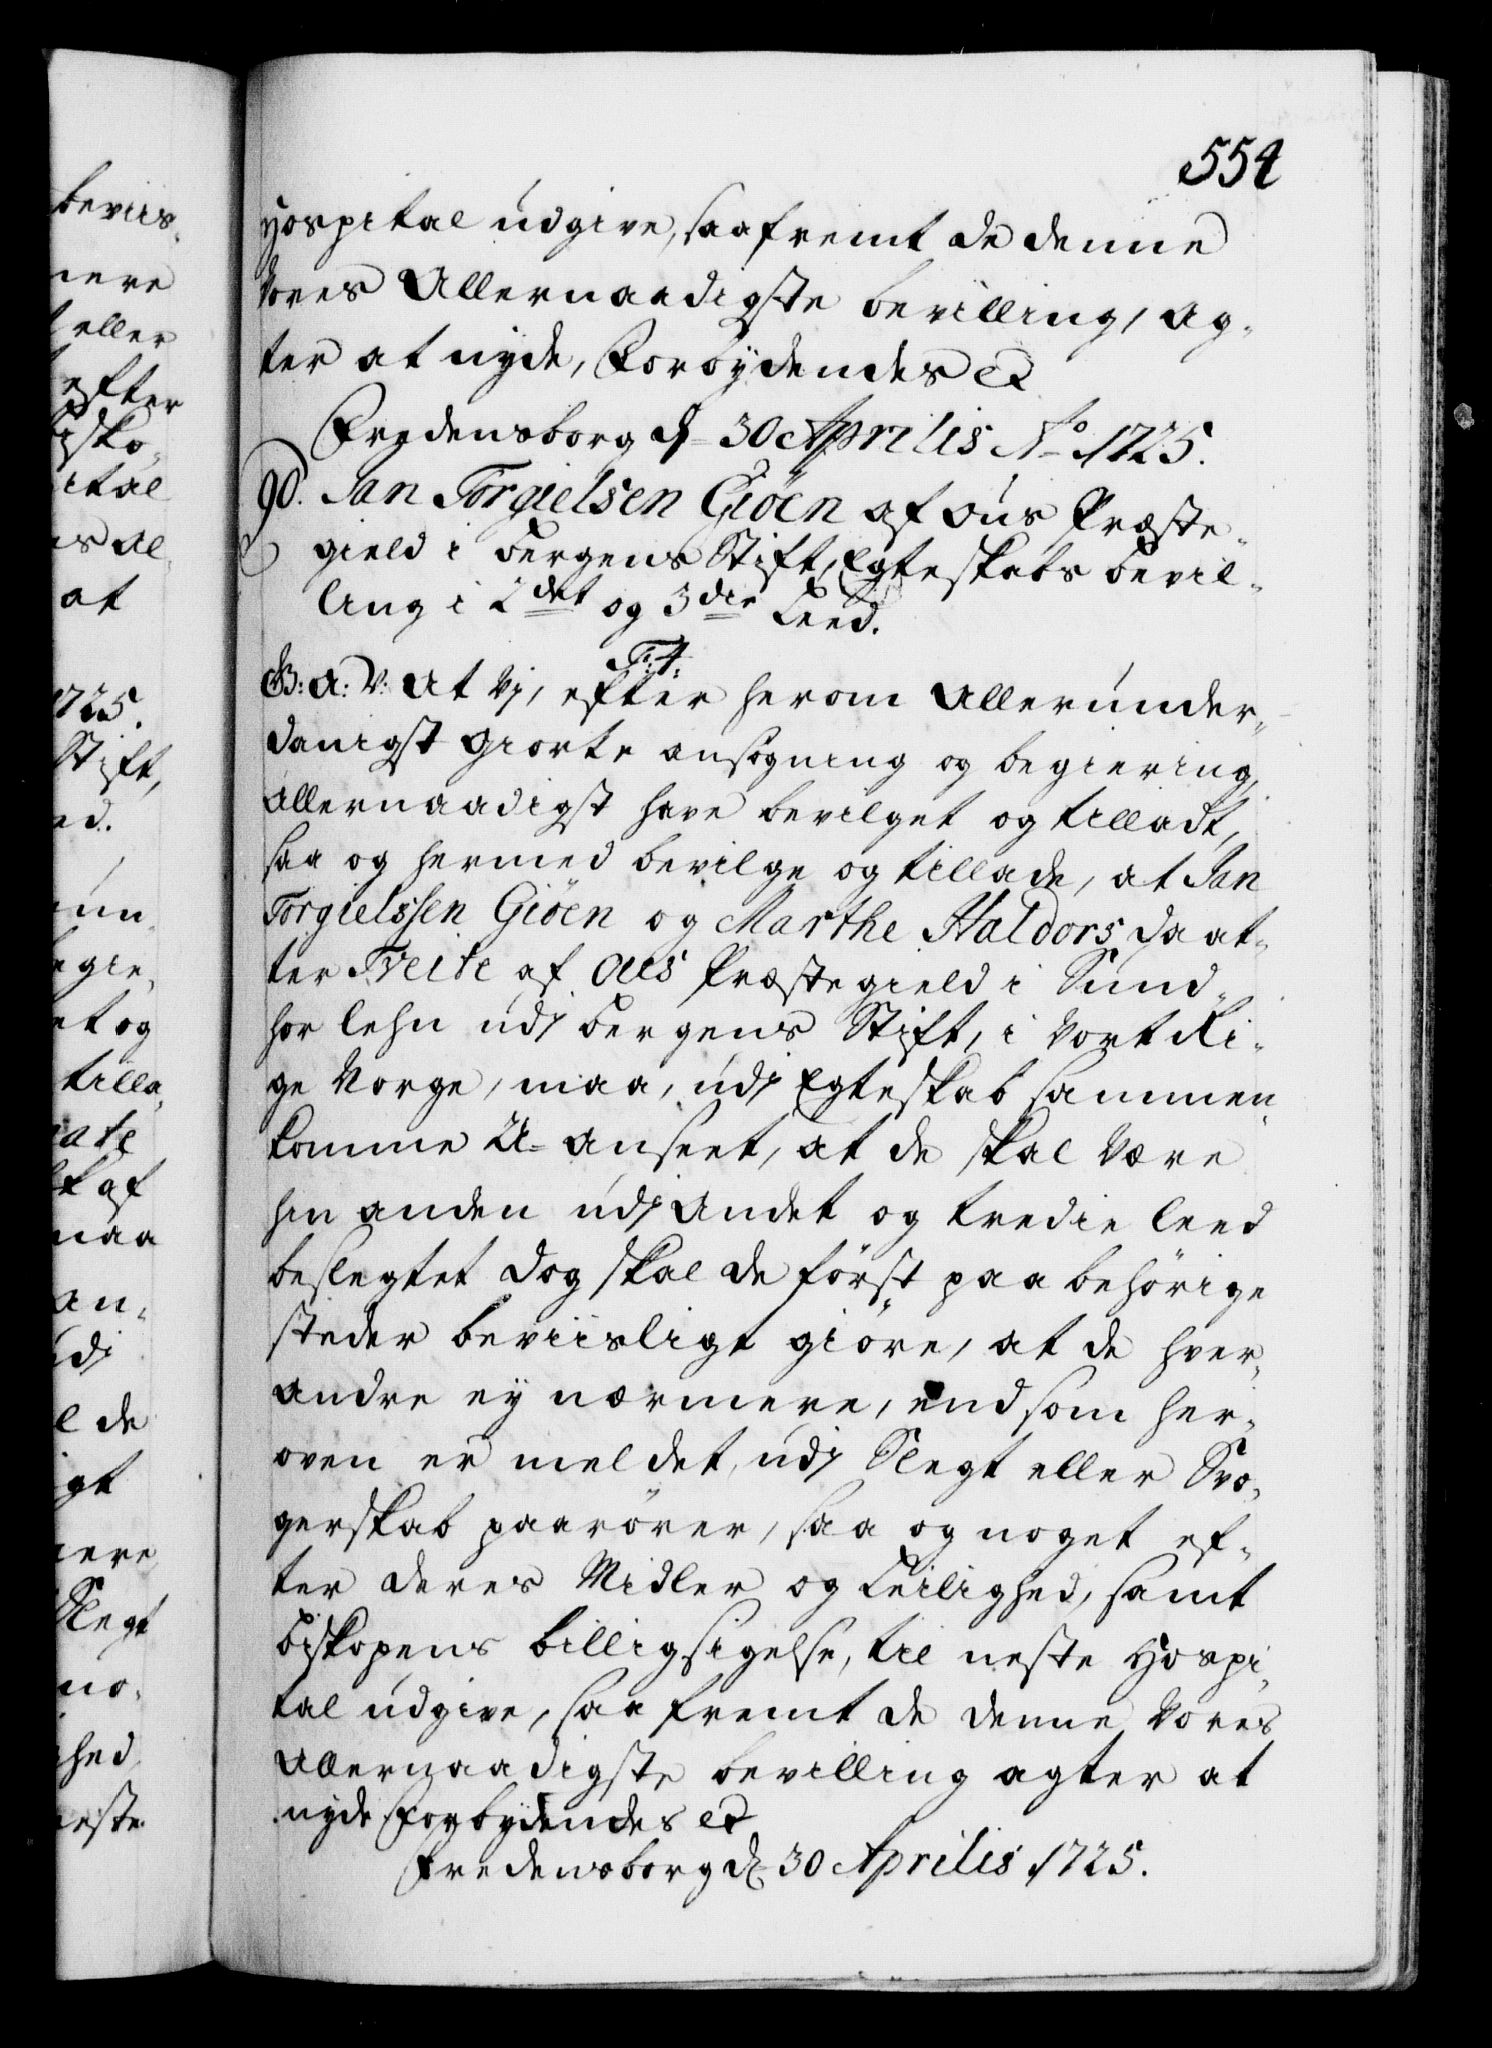 554
Hospital udgive, saafremt de denne
Vores Allernaadigste bevilling, ag-
ter at nyde, Forbydendes etc
Fredensborg d. 30 Aprilis Ao 1725.
90. Jan Torgielsen Giöen af Ous Præste-
gield i Bergens Stift, Egteskabs Bevil-
ling i 2det og 3die Leed.
F: 4:
G: A: V: At Vj, efter herom Allerunder-
danigst giorte ansøgning og begiering,
Allernaadigst have bevilget og tilladt,
saa og hermed bevilge og tillade, at Jan
Torgielssen Giöen og Marthe Haldors Daat-
ter Tveite af Oes Præstegield i Sund-
hor lehn udj Bergens Stift, i Vort Ri-
ge Norge, maa, udj Egteskab sammen-
komme U-anseet, at de skal være
hin anden udj Andet og tredie leed
beslegtet dog skal de först paa behörige
steder beviisligt giöre, at de hver-
andre ey nærmere, end som her-
oven er meldet, udj Slegt eller Svo-
gerskab paarörer, saa og noget ef-
ter deres Midler og Leilighed, samt
Biskopens billigsigelse, til neste Hospi-
tal udgive, saa fremt de denne Vores
Allernaadigste bevilling agter at
nyde Forbydendes etc
Fredensborg d. 30 Aprilis 1725.
beviis-
nere
eller
efter
isko-
ital
at
1725.
Stift,
ed.
et og
tilla-
af
maa
an-
udj
l de
igt
Slegt
no-
hed
neste